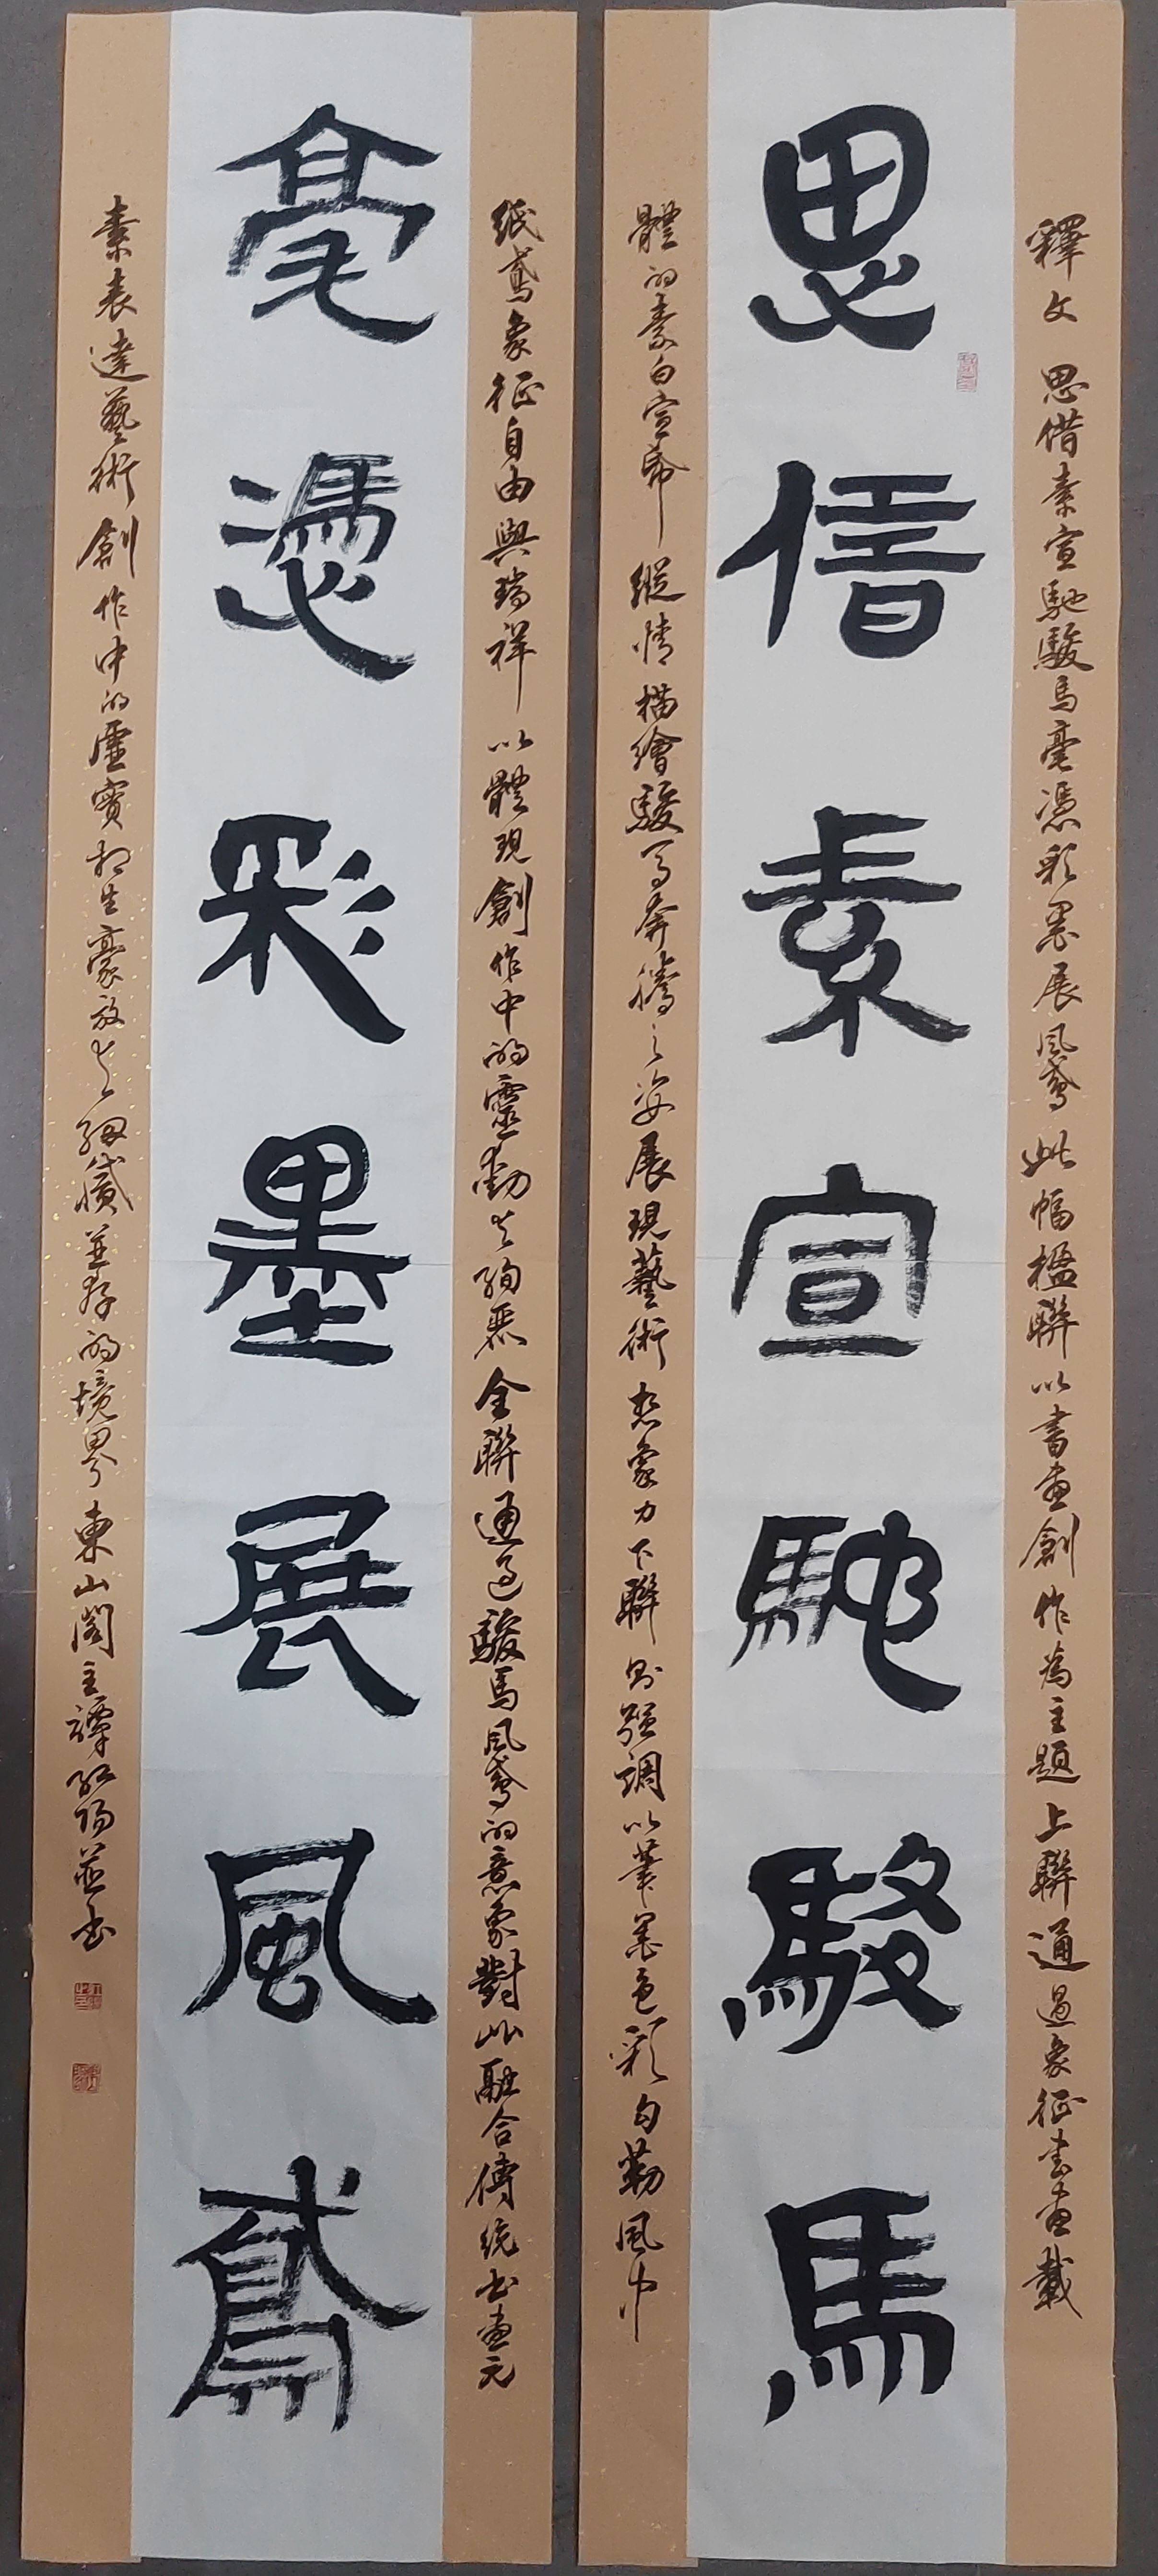 釋文 思借素宣馳駿馬毫憑彩墨展風鳶 此幅楹聯以書畫創作為主題上聯通過象征書畫載
思借素宣馳駿馬
體的素白宣紙縱情描繪駿馬奔騰之姿展現藝術想象力下聯則強調以筆墨色彩勾勒風中
紙鳶象征自由與瑞祥以體現創作中的靈動與絢麗全聯通過駿馬風鳶的意象對比融合傳統书畫元
毫憑彩墨展風鳶
素表達藝術創作中的虛實相生豪放與細膩並存的境界 東山閣主譚紅陽並书